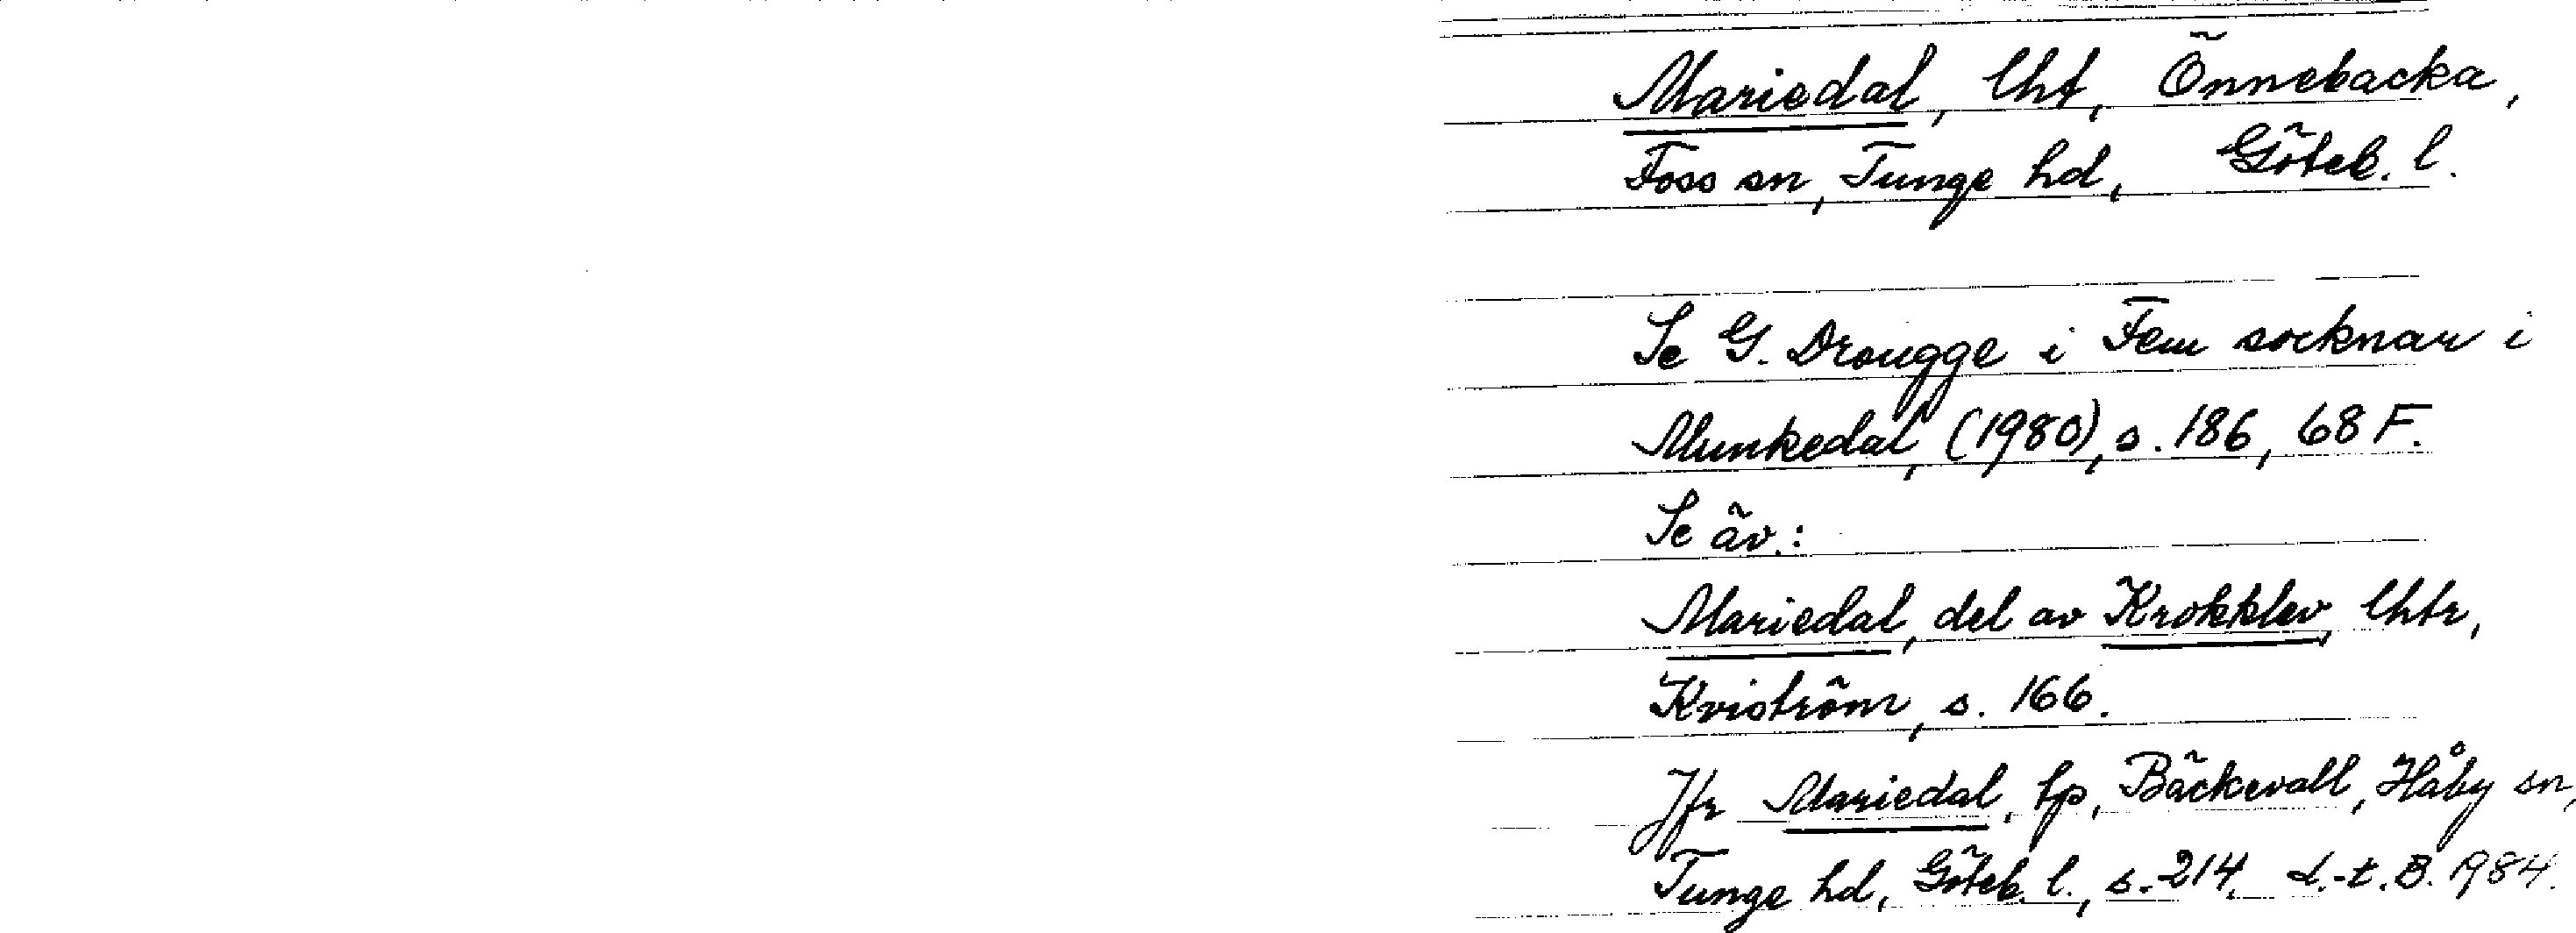 Mariedal, lht, Önnebacka,
Foss sn, Tunge hd, Göteb. l.
Se G. Drougge i Fem socknar i
Munkedal, (1980), s. 186, 68 F.
Se äv.:
Mariedal, del av Krokklev, lhtr,
Kviström, s. 166.
Jfr Mariedal, tp, Bäckevall, Håby sn,
Tunge hd, Göteb. l., s. 214. L.-t. B. 1984.